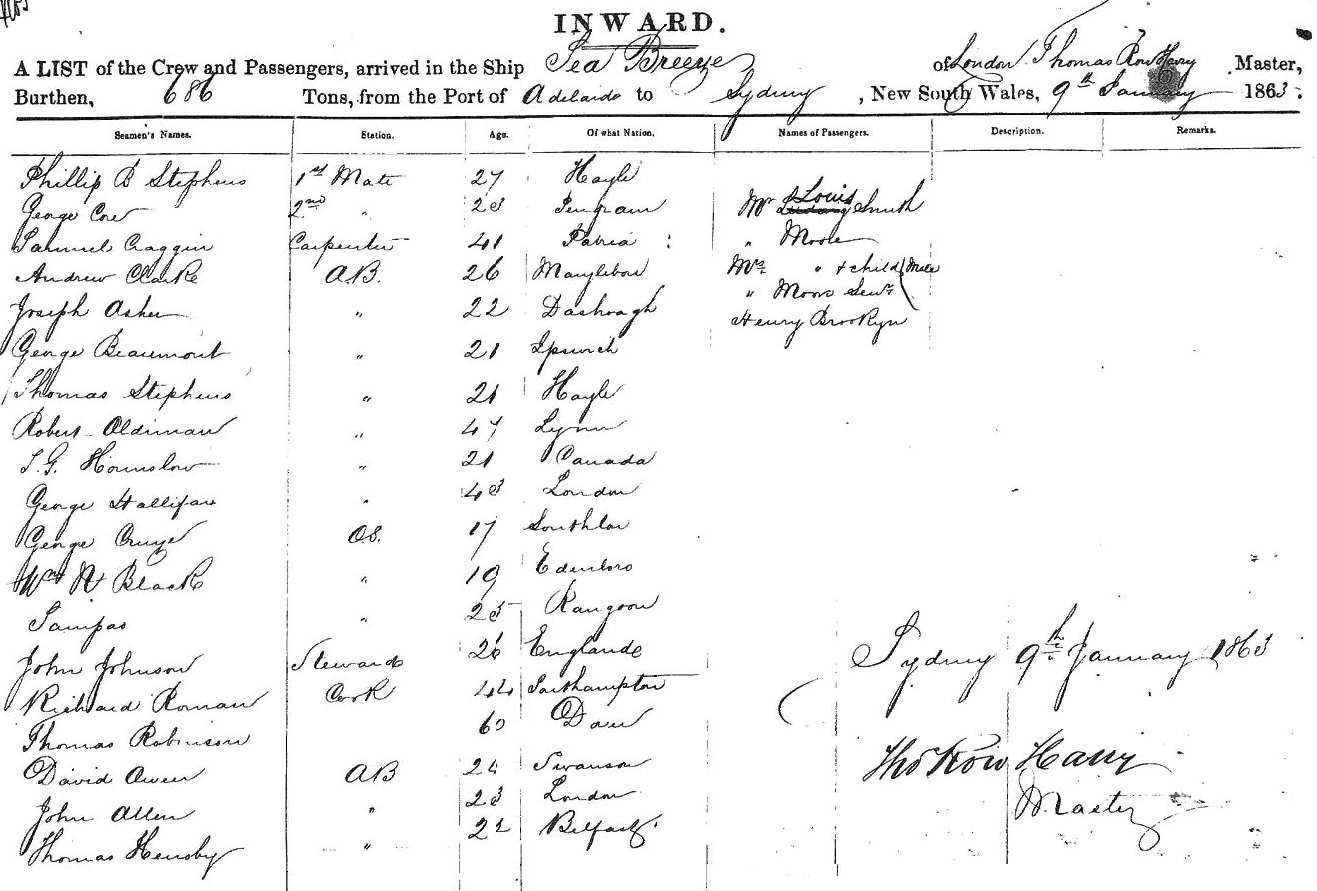 INWARD.
A LIST of the Crew and Passengers, arrived in the Ship Sea Breeze of London Thomas Row Harry Master,
Burthen, 686 Tons, from the Port of Adelaide to Sydney, New South Wales, 9th January 1863.
Seamen's Names. Station. Age. Of what Nation. Names of Passengers. Description. Remarks.
Phillip B Stephens 1st Mate 27 Hayle
George Cow 2nd " 23 Mr Louis Smith
Samuel Craggin Carpenter 41 " Moore
Andrew Clarke A.B. 26 Marylebon Mrs " + child Male
Joseph Asher " 22 " Moore Senr
Henry Brooklyn
George Beaumont " 21 Ipswich
Thomas Stephens " 21 Hayle
Robert Oldiman " 47 Lynn
T.G. Hounslow " 21 Canada
George Hallifax " 43 London
George Cruze O.S. 17
Wm H Black " 19 Edenboro
Sampas " 25 Rangoon
John Johnson Steward 26 England
Richard Roman Cook 44 Southampton
Thomas Robinson 60
David Owen AB 24 Swanson
John Allen " 23 London
Thomas Hensby " 22 Belfast
Sydney 9th January 1863
Thos Row Harry
Master